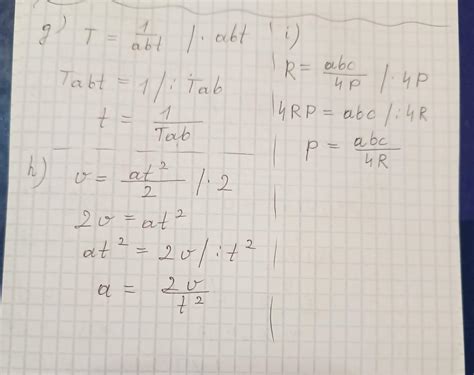 g) T = 1/abt /· abt
Tabt = 1 /: Tab
t = 1/Tab
h) v = at²/2 /· 2
2v = at²
at² = 2v /: t²
a = 2v/t²
i)
R = abc/4P /· 4P
4RP = abc /: 4R
P = abc/4R